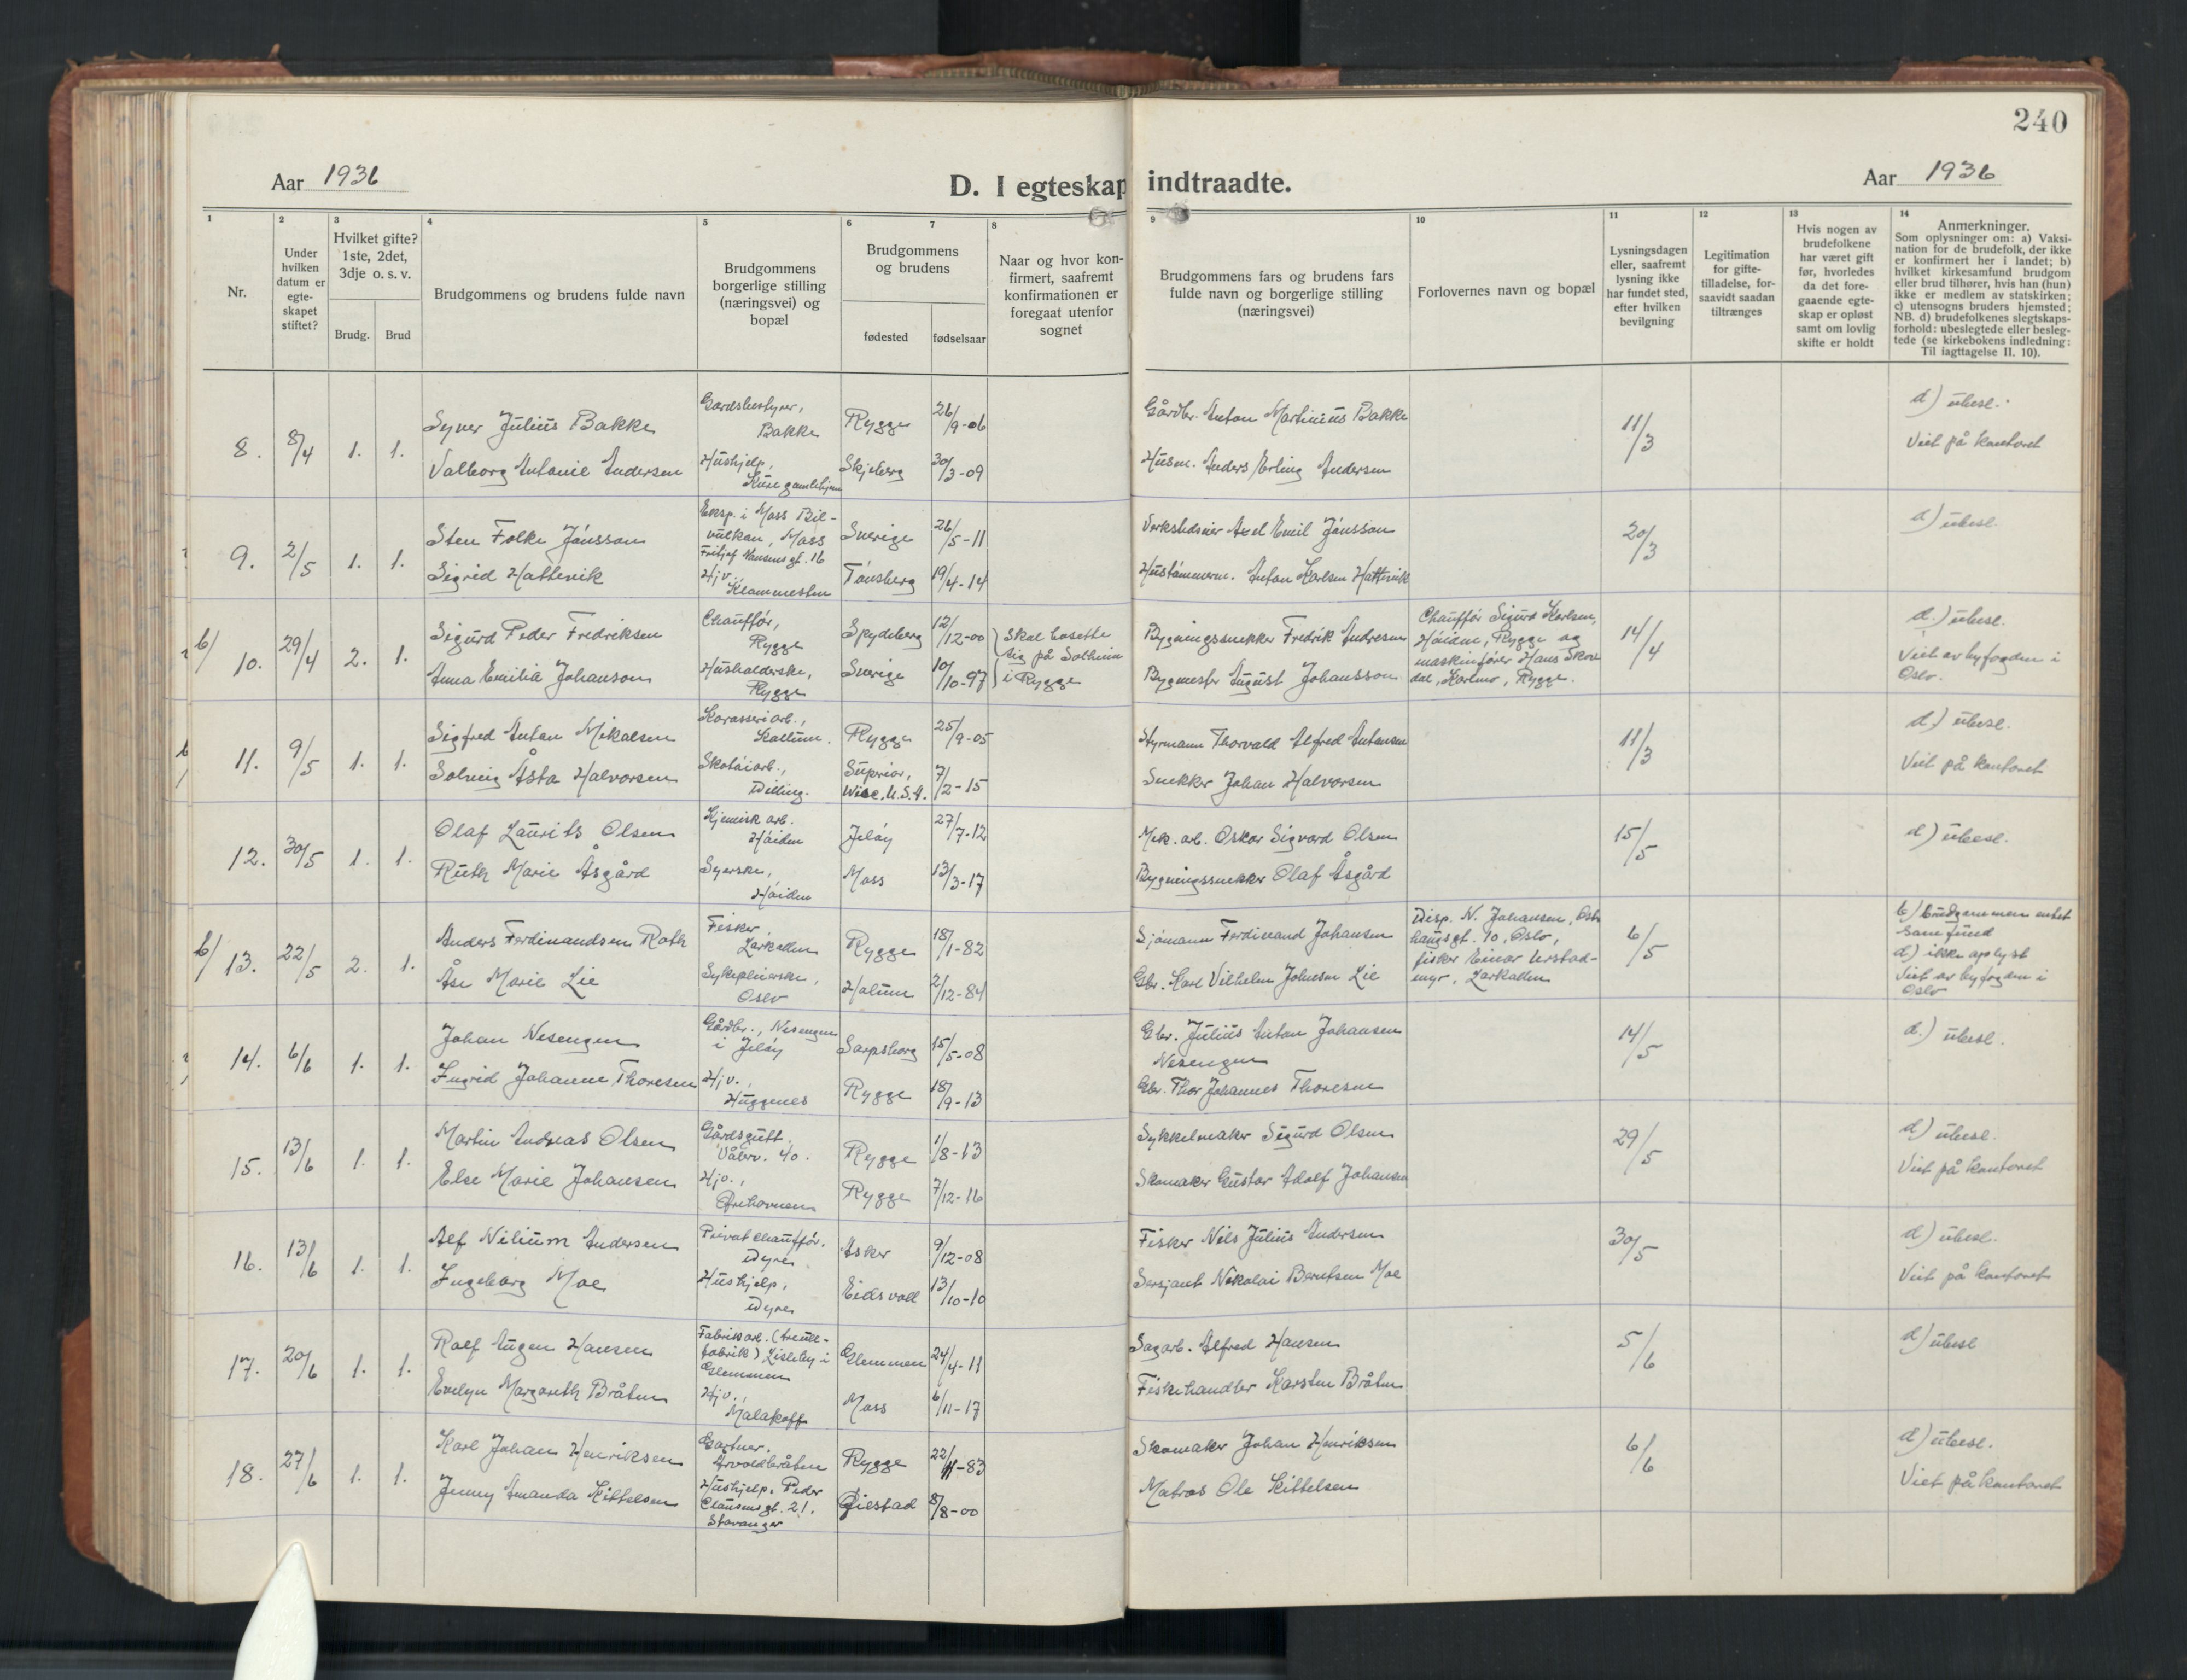 240
Aar 1936
D. I egteskap indtraadte.
Aar 1936
1
2
3
4
5
6
7
8
9
10
11
12
13
14
Nr.
Under
hvilken
datum er
egte-
skapet
stiftet?
Hvilket gifte?
1ste, 2det,
3dje o. s. v.
Brudg.
Brud
Brudgommens og brudens fulde navn
Brudgommens
borgerlige stilling
(næringsvei) og
bopæl
Brudgommens
og brudens
fødested
fødselsaar
Naar og hvor kon-
firmert, saafremt
konfirmationen er
foregaat utenfor
sognet
Brudgommens fars og brudens fars
fulde navn og borgerlige stilling
(næringsvei)
Forlovernes navn og bopæl
Lysningsdagen
eller, saafremt
lysning ikke
har fundet sted,
efter hvilken
bevilgning
Legitimation
for gifte-
tilladelse, for-
saavidt saadan
tiltrænges
Hvis nogen av
brudefolkene
har været gift
før, hvorledes
da det fore-
gaaende egte-
skap er opløst
samt om lovlig
skifte er holdt
Anmerkninger.
Som oplysninger om: a) Vaksi-
nation for de brudefolk, der ikke
er konfirmert her i landet; b)
hvilket kirkesamfund brudgom
eller brud tilhører, hvis han (hun)
ikke er medlem av statskirken;
c) utensogns bruders hjemsted;
NB. d) brudefolkenes slegtskaps-
forhold: ubeslegtede eller besleg-
tede (se kirkebokens indledning:
Til iagttagelse II. 10).
8. 8/4 1. 1.
Syver Julius Bakke
Valborg Antonie Andersen
Gårdsbestyrer,
Bakke
Hushjelp,
Kure gamlehjem
Rygge 26/9-06
Skjeberg 30/3-09
Gårdbr. Anton Martinius Bakke
Husm. Anders Erling Andersen
11/3
d) ubesl.
Viet på kontoret
9. 2/5 1. 1.
Sten Folke Jönsson
Sigrid Hattevik
Eksp. i Moss Bil-
vulkan, Moss
Fritjof Nansens gt. 16
Hjv.,
Klommesten
Sverige 26/5-11
Tønsberg 19/4-14
Verkstedseier Axel Emil Jönsson
Hustømmerm. Anton Karlsen Hattevik
20/3
d) ubesl.
b/ 10. 29/4 2. 1.
Sigurd Peder Fredriksen
Anna Emilia Johanson
Chauffør,
Rygge
Husholderske,
Rygge
Spydeberg 12/12-00
Sverige 10/10-97
Skal bosette
sig på Solheim
i Rygge
Bygningssnekker Fredrik Andresen
Bygmester August Johansson
Chauffør Sigurd Karlsen,
Høiden, Rygge og
maskinfører Hans Skov
dal, Karlmo, Rygge.
14/4
d.) ubesl.
Viet av byfogden i
Oslo.
11. 9/5 1. 1.
Sigfred Anton Mikalsen
Solveig Åsta Halvorsen
Karosseriarb.,
Kallum.
Skotøiarb.,
Dilling.
Rygge 25/9-05
Suprior,
Wisc. U.S.A. 7/2-15
Styrmann Thorvald Alfred Antonsen
Snekker Johan Halvorsen
11/3
d.) ubesl.
Viet på kontoret
12. 30/5 1. 1.
Olaf Laurits Olsen
Ruth Marie Åsgård
Kjemisk arb.
Høiden
Syerske,
Høiden
Jeløy 27/7-12
Moss 13/3-17
Mek. arb. Oskar Sigvard Olsen
Bygningssnekker Olaf Åsgård
15/5
d) ubesl.
b/ 13. 22/5 2. 1.
Anders Ferdinandsen Roth
Åse Marie Lie
Fisker,
Larkollen
Sykepleierske,
Oslo
Rygge 18/1-82
Holum 2/12-84
Sjømann Ferdinand Johansen
Gbr. Karl Vilhelm Johnsen Lie
Disp. N. Johansen,
gt. 10, Oslo,
fisker Einar Urstad-
myr, Larkollen
6/5
b) brudgommen intet
samfund
d) ikke oplyst
Viet av byfogden i
Oslo
14. 6/6 1. 1.
Johan Nesengen
Ingrid Johanne Thoresen
Gårdbr., Nesengen
i Jeløy
Hjv.,
Huggenes
Sarpsborg 15/5-08
Rygge 18/9-13
Gbr. Julius Anton Johansen
Nesengen
Gbr. Thor Johannes Thoresen
14/5
d.) ubesl.
15. 13/6 1. 1.
Martin Andreas Olsen
Else Marie Johansen
Gårdsgutt.
Vålerv. 40.
Hjv.,
Ørehavnen
Rygge 1/8-13
Rygge 7/12-16
Sykkelmaker Sigurd Olsen
Skomaker Gustav Adolf Johansen
29/5
d) ubesl.
Viet på kontoret
16. 13/6 1. 1.
Alf Nilium Andersen
Ingeborg Moe
Privatchauffør.
Dyre
Hushjelp,
Dyre
Asker 9/12-08
Eidsvoll 13/10-10
Fisker Nils Julius Andersen
Sersjant Nikolai Berntsen Moe
30/5
d) ubesl.
Viet på kontoret
17. 20/6 1. 1.
Rolf Eugen Hansen
Evelyn Margareth Bråten
Fabrikarb. (treull-
fabrik) Lisleby i
Glemmen
Hjv.,
Malakoff
Glemmen 24/4-11
Moss 6/11-17
Sagarb. Alfred Hansen
Fiskehandler Karsten Bråten
5/6
d) ubesl
18. 27/6 1. 1.
Karl Johan Henriksen
Jenny Amanda Kittelsen
Gartner.
Arvoldbråten
Hushjelp. Peder
Clausens gt. 21.
Stavanger
Rygge 22/11-83
Øiestad 8/8-00
Skomaker Johan Henriksen
Matros Ole Kittelsen
6/6
d) ubesl.
Viet på kontoret